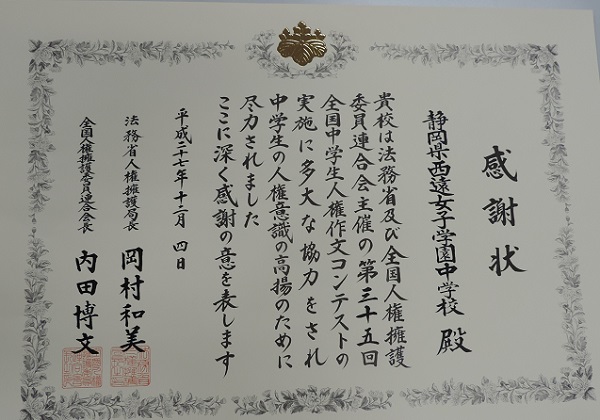 感謝状
静岡県西遠女子学園中学校 殿
貴校は法務省及び全国人権擁護
委員連合会主催の第三十五回
全国中学生人権作文コンテストの
実施に多大な協力をされ
中学生の人権意識の高揚のために
尽力されました
ここに深く感謝の意を表します
平成二十七年十二月 四日
法務省人権擁護局長 岡村和美
全国人権擁護委員連合会長 内田博文